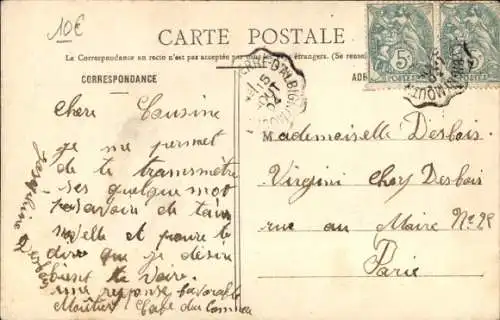 10€
CARTE POSTALE
La Correspondance au recto n'est pas acceptée par tous les étrangers. (Se rense
CORRESPONDANCE
ADR
5c
5c
POSTES
POSTES
Chere Cousine
je me permet
de te transmetre
ses quelque mot
pour avoir de ta
nouvelle et pour te
dire que je désire
bient te voire.
une reponse favorable
Moûtier Café du Commerce
Mademoiselle Desbois
Virgini chez Desbois
rue au Maire Nº 28
Paris